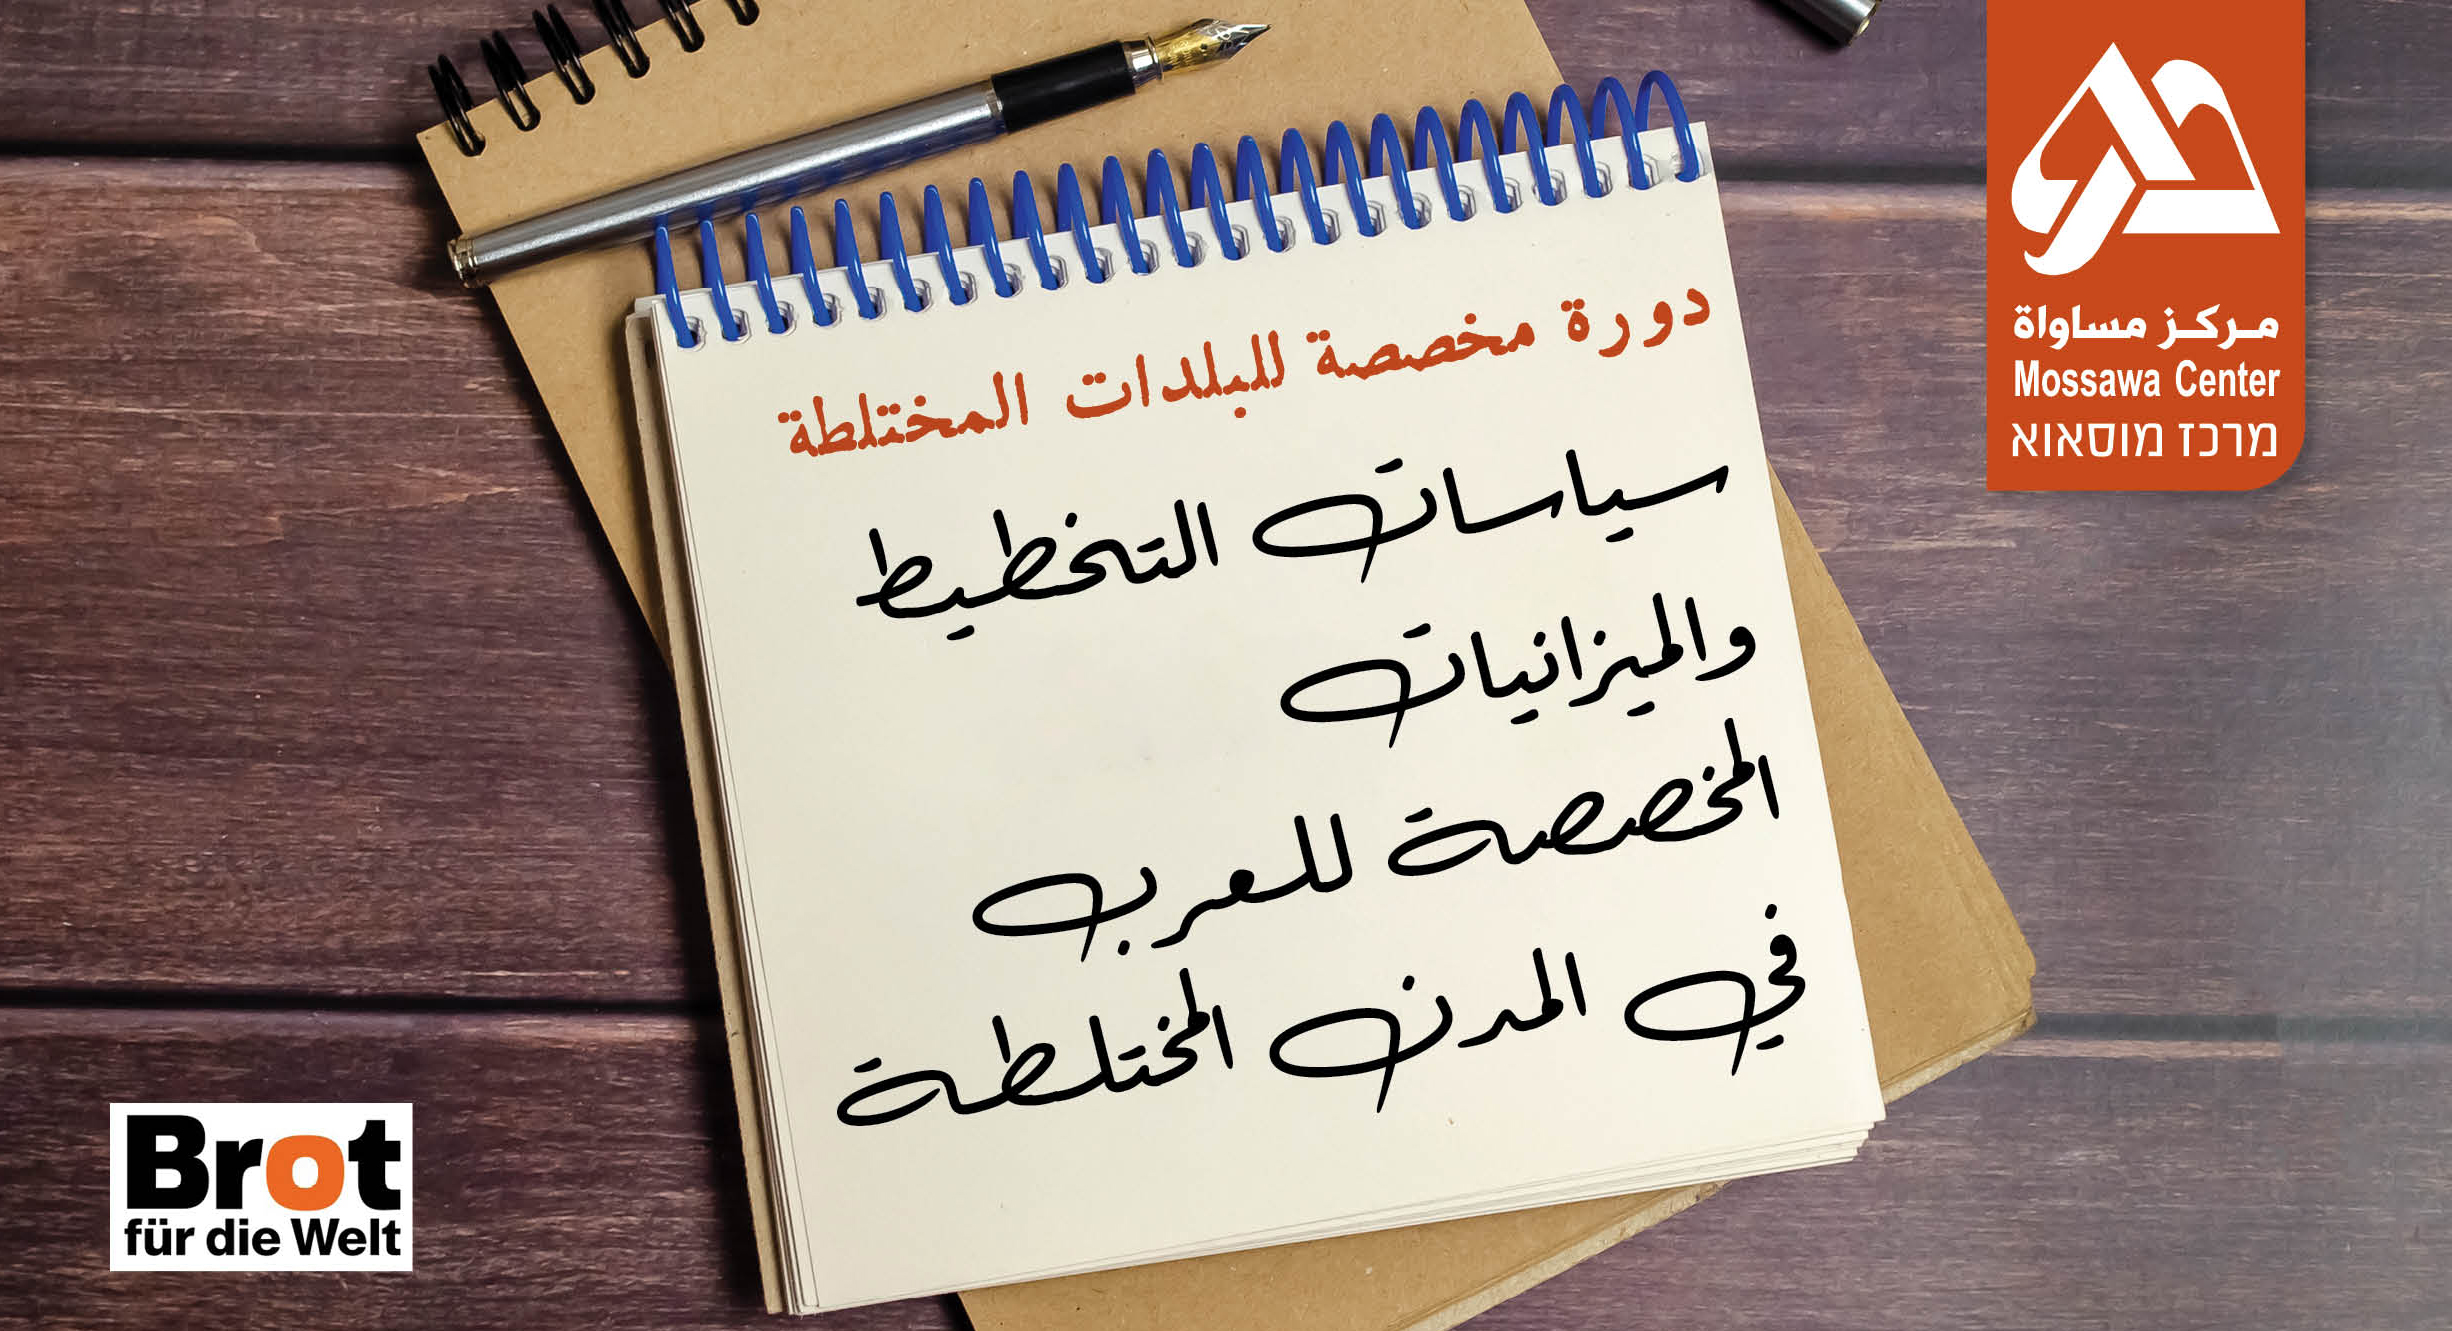 دورة مخصصة للبلدات المختلطة
سياسات التخطيط
والميزانيات
المخصصة للعرب
في المدن المختلطة
مركز مساواة
Mossawa Center
מרכז מוסאוא
Brot
für die Welt